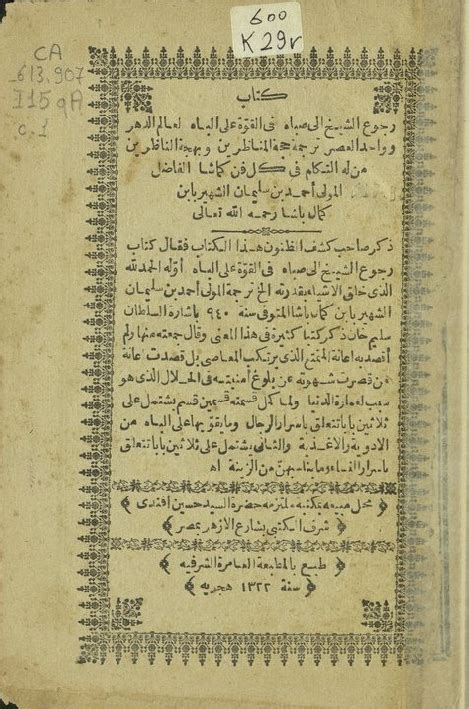 600
K29r
CA
613.907
I15qA
c.1
كتاب
رجوع الشيخ الى صباه فى القوة على الباه لعالم الدهر
وواحد العصر ترجمة حجة المناظرين وبهجة الناظرين
من له التكلم فى كل فن كماشا الفاضل
المولى أحمد بن سليمان الشهير بابن
كمال باشا رحمه الله تعالى
ذكر صاحب كشف الظنون هذا الكتاب فقال كتاب
رجوع الشيخ الى صباه فى القوة على الباه أوله الحمد لله
الذى خلق الاشياء بقدرته الخ ترجمة المولى أحمد بن سليمان
الشهير بابن كمال باشا المتوفى سنة ٩٤٠ باشارة السلطان
سليم خان ذكر كتبا كثيرة فى هذا المعنى وقال جمعته منها ولم
أقصد به اعانة المتمتع الذى يرتكب المعاصى بل قصدت اعانة
من قصرت شهوته عن بلوغ أمنيته فى الحلال الذى هو
سبب لعمارة الدنيا ولما كمل قسمته قسمين قسم يشتمل على
ثلاثين بابا تتعلق باسرار الرجال وما يقويها على الباه من
الادوية والاغذية والثانى يشتمل على ثلاثين بابا تتعلق
باسرار النساء وما يناسبهن من الزينة اه
محل مبيعه بمكتبة ملتزمه حضرة السيد حسين أفندى
شرف الكتبى بشارع الازهر بمصر
طبع بالمطبعة العامرة الشرفيه
سنة ١٣٢٢ هجريه